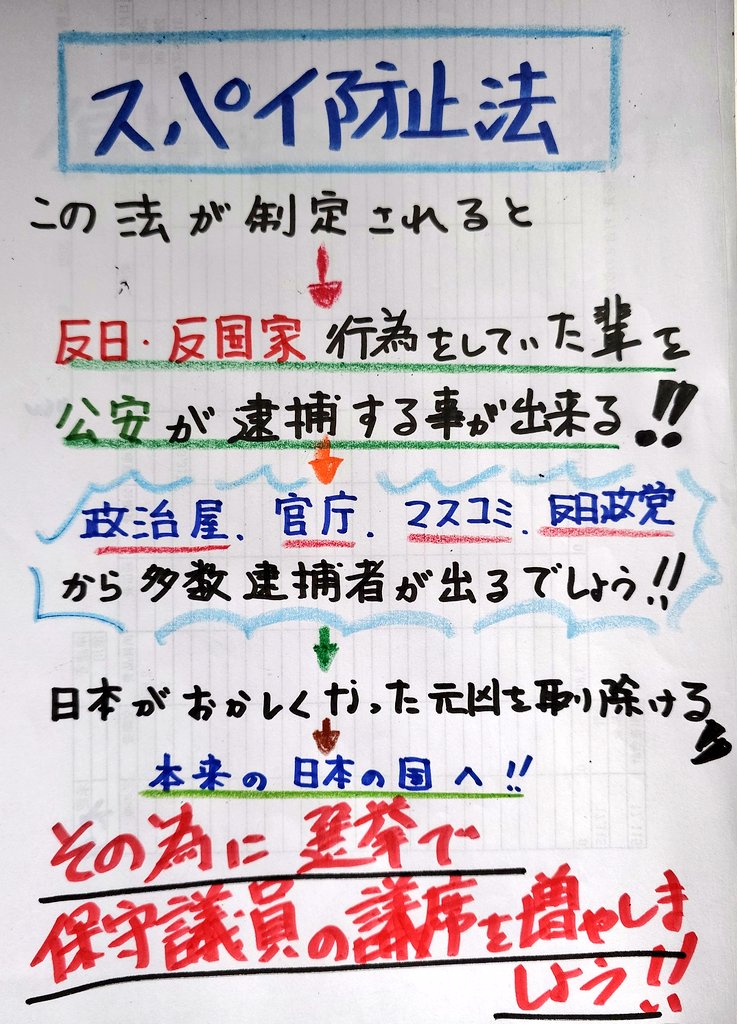 スパイ防止法
この法が制定されると
反日・反国家行為をしていた輩を
公安が逮捕する事が出来る!!
政治屋、官庁、マスコミ、反日政党
から多数逮捕者が出るでしょう!!
日本がおかしくなった元凶を取り除ける
本来の日本の国へ!!
その為に選挙で
保守議員の議席を増やしま
しょう!!